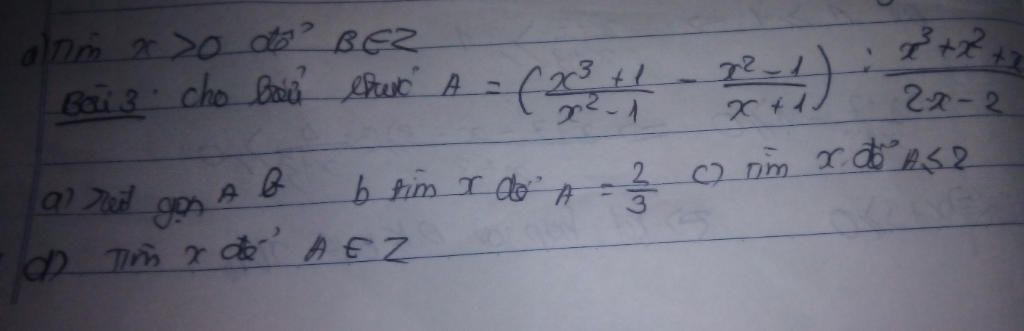 d) Tìm x > 0 để B ∈ Z
Bài 3. Cho biểu thức A = (x³ + 1 / x² - 1 - x² - 1 / x + 1) : x³ + x² + x / 2x - 2
a) Rút gọn A b tìm x để A = 2/3 c) Tìm x để A < 2
d) Tìm x để A ∈ Z